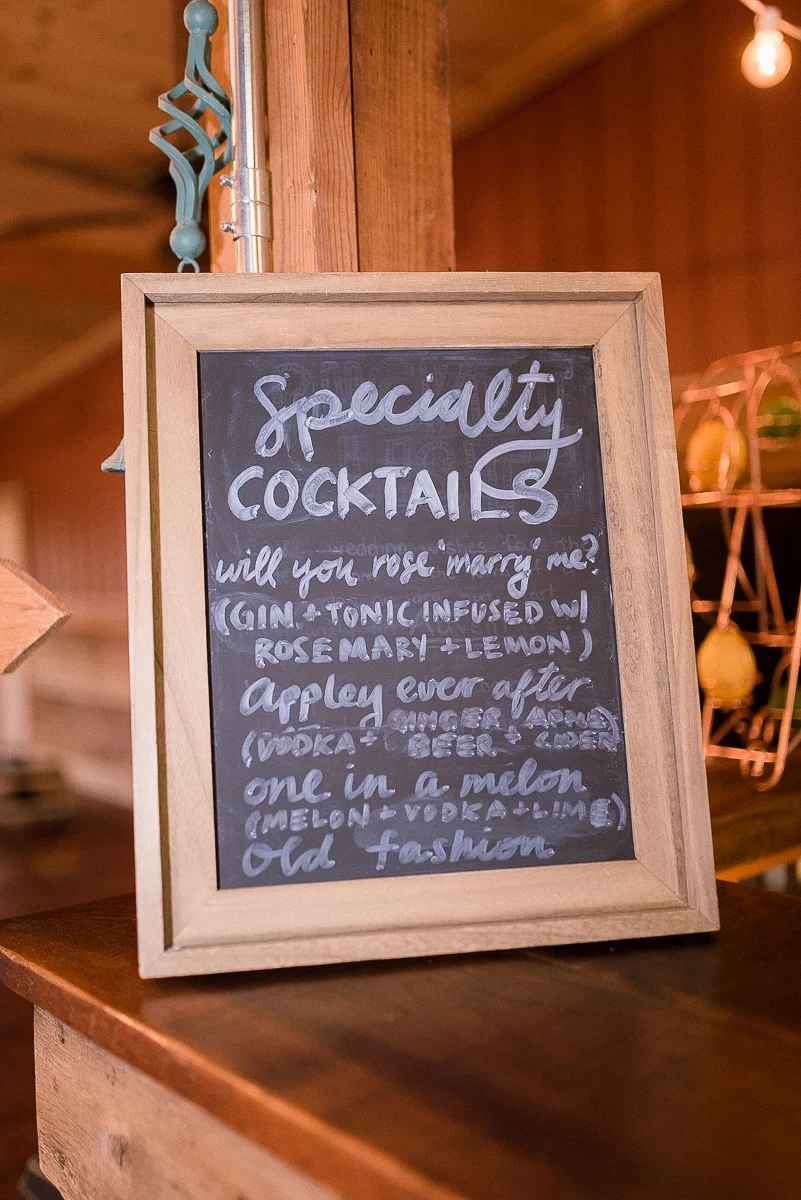 Specialty
COCKTAILS
will you rose 'marry' me?
(GIN + TONIC INFUSED W/
ROSEMARY + LEMON)
Appley ever after
(VODKA + GINGER BEER + APPLE CIDER)
one in a melon
(MELON + VODKA + LIME)
Old fashion